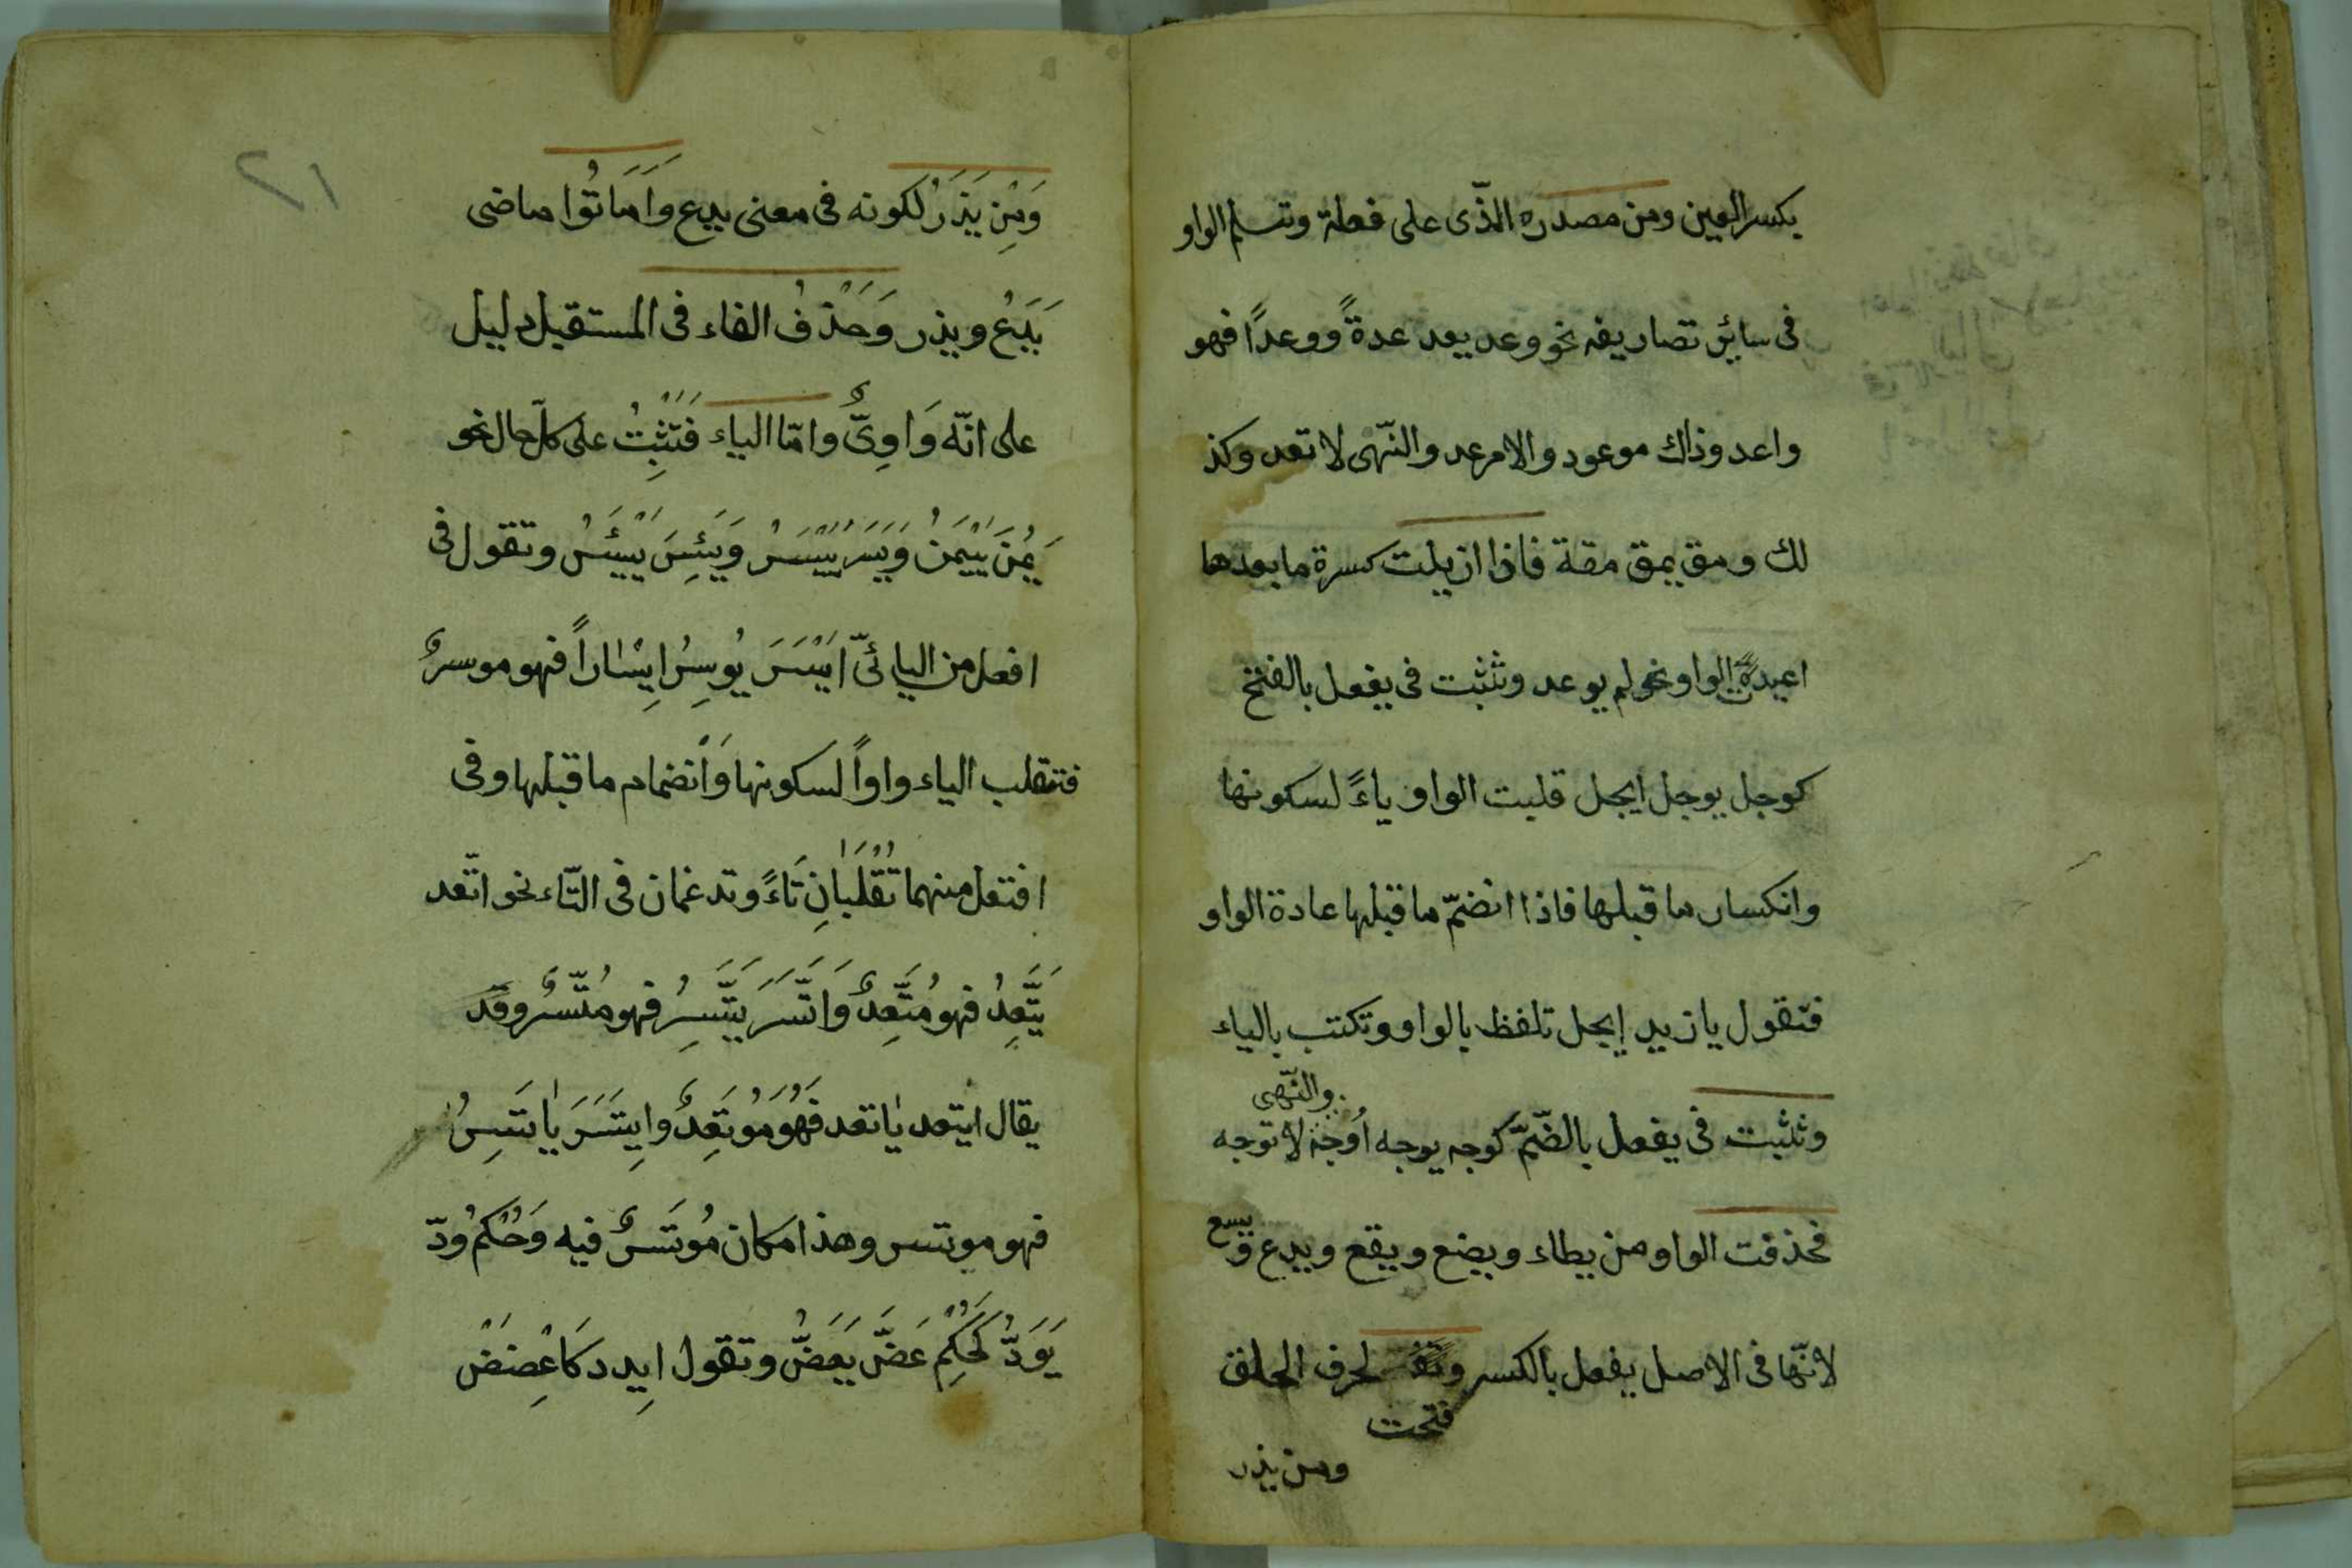 بكسر العين ومن مصدره الذّى على فعلة وتسلم الواو
فى سائر تصاريفه نحو وعد يعد عدةً ووعدًا فهو
واعد وذاك موعود والامر عد والنّهى لا تعد وكذ
لك ومق يمق مقة فاذا ازيلت كسرة ما بعدها
اعيدت الواو نحو لم يوعد وتثبت فى يفعل بالفتح
كوجل يوجل ايجل قلبت الواو ياءً لسكونها
وانكسار ما قبلها فاذا انضمّ ما قبلها عادة الواو
فتقول يا زيد إيجل تلفظ بالواو وتكتب بالياء
والنّهى
وتثبت فى يفعل بالضّمّ كوجه يوجه اُوجه لا توجه
فحذفت الواو من يطاء ويضع ويقع ويدع ويسع
لانّها فى الاصل يفعل بالكسر لحرف الحلق
فتحت
ومن يذر
٢١
وَمِن يَذَرُ لكونه فى معنى يدع وَاَمَاتُوا ماضى
يَدَعُ ويذر وَحَذْفُ الفاء فى المستقبل دليل
على انّه وَاوِىٌّ وامّا الياء فَتَثْبِتُ على كلّ حال نحو
يَمُنَ يَيْمَنُ وَيَسَرَ يَيْسَرُ وَيَئِسَ يَيْئَسُ وتقول فى
افعل من اليائىّ اَيْسَرَ يُوسِرُ اِيسَاراً فهو موسرٌ
فتنقلب الياء واواً لسكونها وَانْضمام ما قبلها وفى
افتعل منهما تُقْلَبَانِ تَاءً وتدغمان فى التّاء نحو اتّعد
يَتَّعِدُ فهو مُتَّعِدٌ وَاتَّسَرَ يَتَّسِرُ فهو مُتّسرٌ وقد
يقال ايتعد يَاتعد فَهُوَ مُوتَعِدٌ وايِتَسَرَ يَاتَسِرُ
فهو موتسر وهذا مكان مُوتَسَرٌ فيه وَحُكْمُ وَدّ
يَوَدُّ كَحُكْمِ عَضَّ يَعَضُّ وتقول ايِدد كَاعْضَضْ